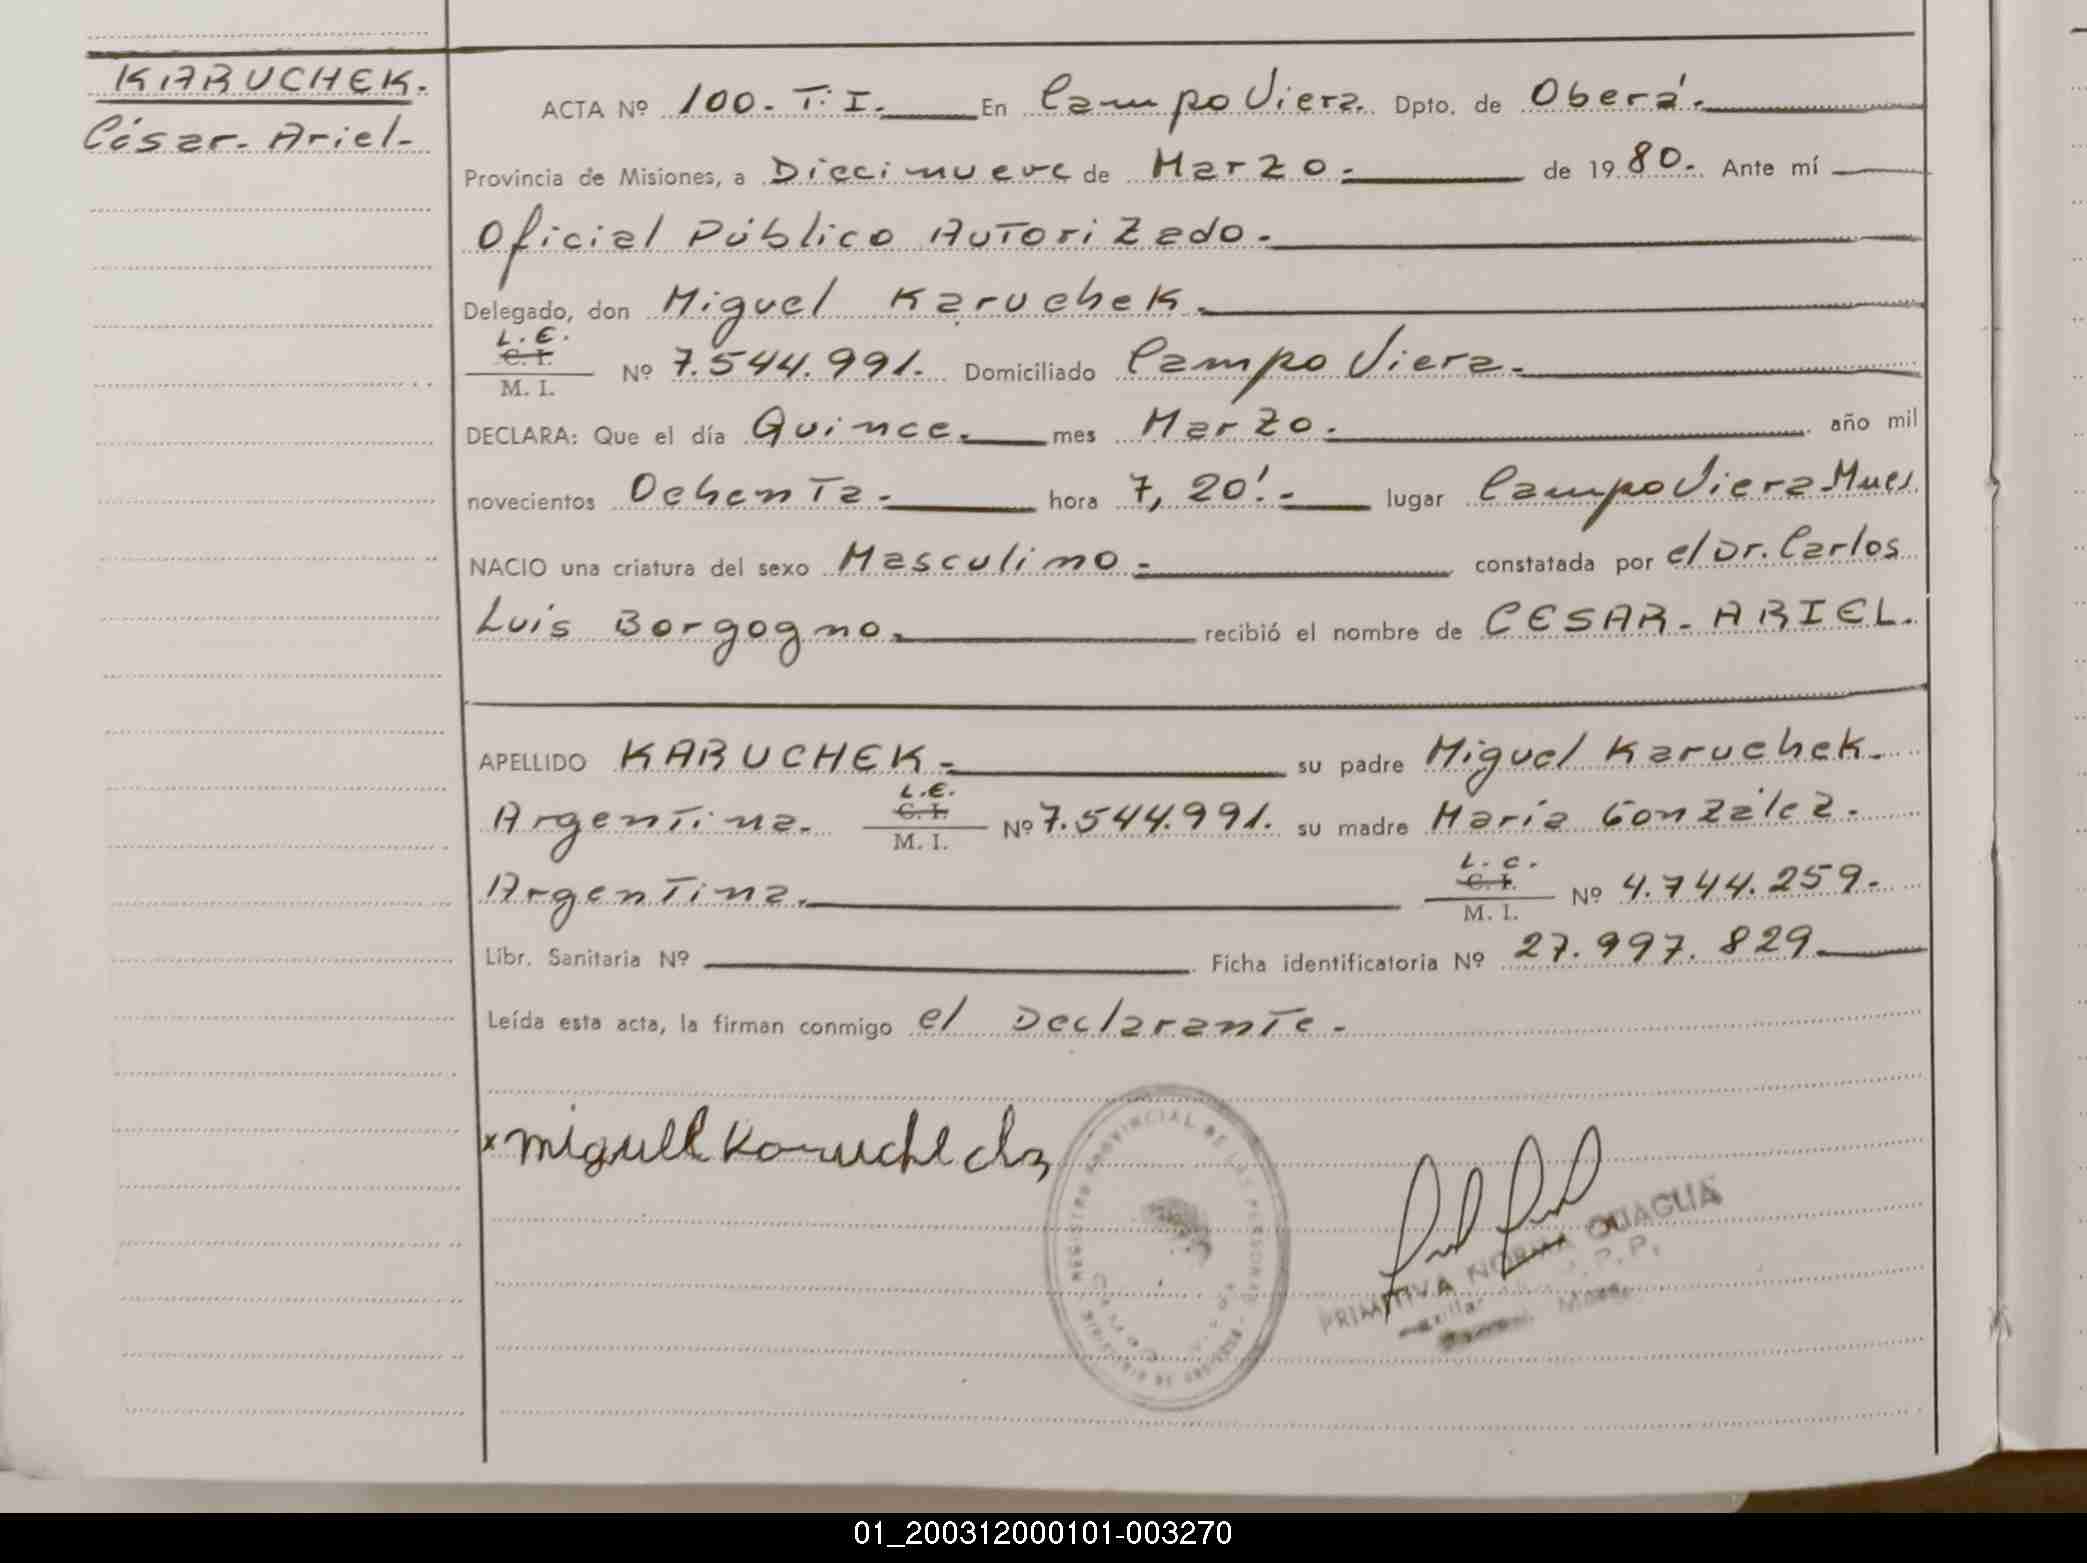 KARUCHEK.
César - Ariel -
ACTA Nº 100. T. I. En Campo Viera. Dpto. de Oberá.
Provincia de Misiones, a Diecinueve de Marzo. de 1980. Ante mí
Oficial Público Autorizado.
Delegado, don Miguel Karuchek.
L. E.
C. I.
M. I. Nº 7.544.991. Domiciliado Campo Viera.
DECLARA: Que el día Quince. mes Marzo. año mil
novecientos Ochenta. hora 7, 20'. lugar Campo Viera
NACIO una criatura del sexo Masculino. constatada por el Dr. Carlos
Luis Borgogno. recibió el nombre de CESAR - ARIEL.
APELLIDO KARUCHEK. su padre Miguel Karuchek.
L. E.
Argentina. C. I.
M. I. Nº 7.544.991. su madre María González.
L. C.
Argentina. C. I.
M. I. Nº 4.744.259.
Libr. Sanitaria Nº Ficha identificatoria Nº 27.997.829
Leída esta acta, la firman conmigo el Declarante.
x
REGISTRO PROVINCIAL DE LAS PERSONAS
PRIMITIVA NORMA QUAGLIA
01_200312000101-003270